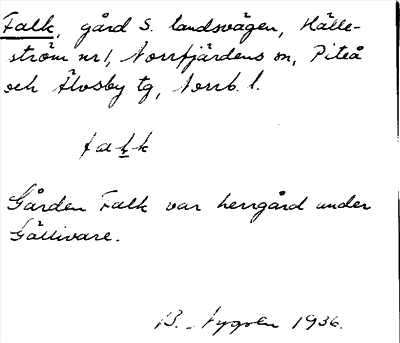 Falk, gård S. landsvägen, Hälle-
ström nr 1, Norrfjärdens sn, Piteå
och Älvsby tg, Norrb. l.
falk
Gården Falk var herrgård under
Gällivare.
B. Nygren 1936.